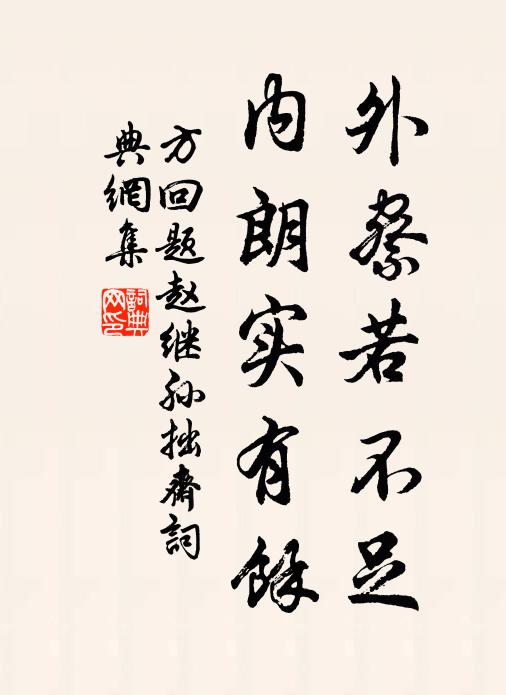 外察若不足
内朗实有馀
方回题赵继孙拙斋詞
典網集
詞典网印